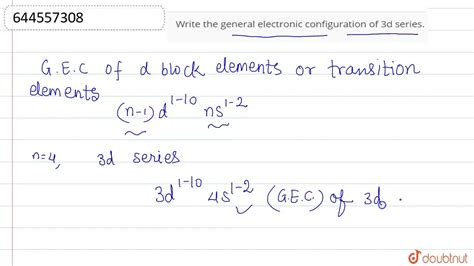 644557308
Write the general electronic configuration of 3d series.
G.E.C of d block elements or transition
elements
(n-1)d¹⁻¹⁰ ns¹⁻²
n=4, 3d series
3d¹⁻¹⁰ 4s¹⁻² (G.E.C.) of 3d.
doubtnut